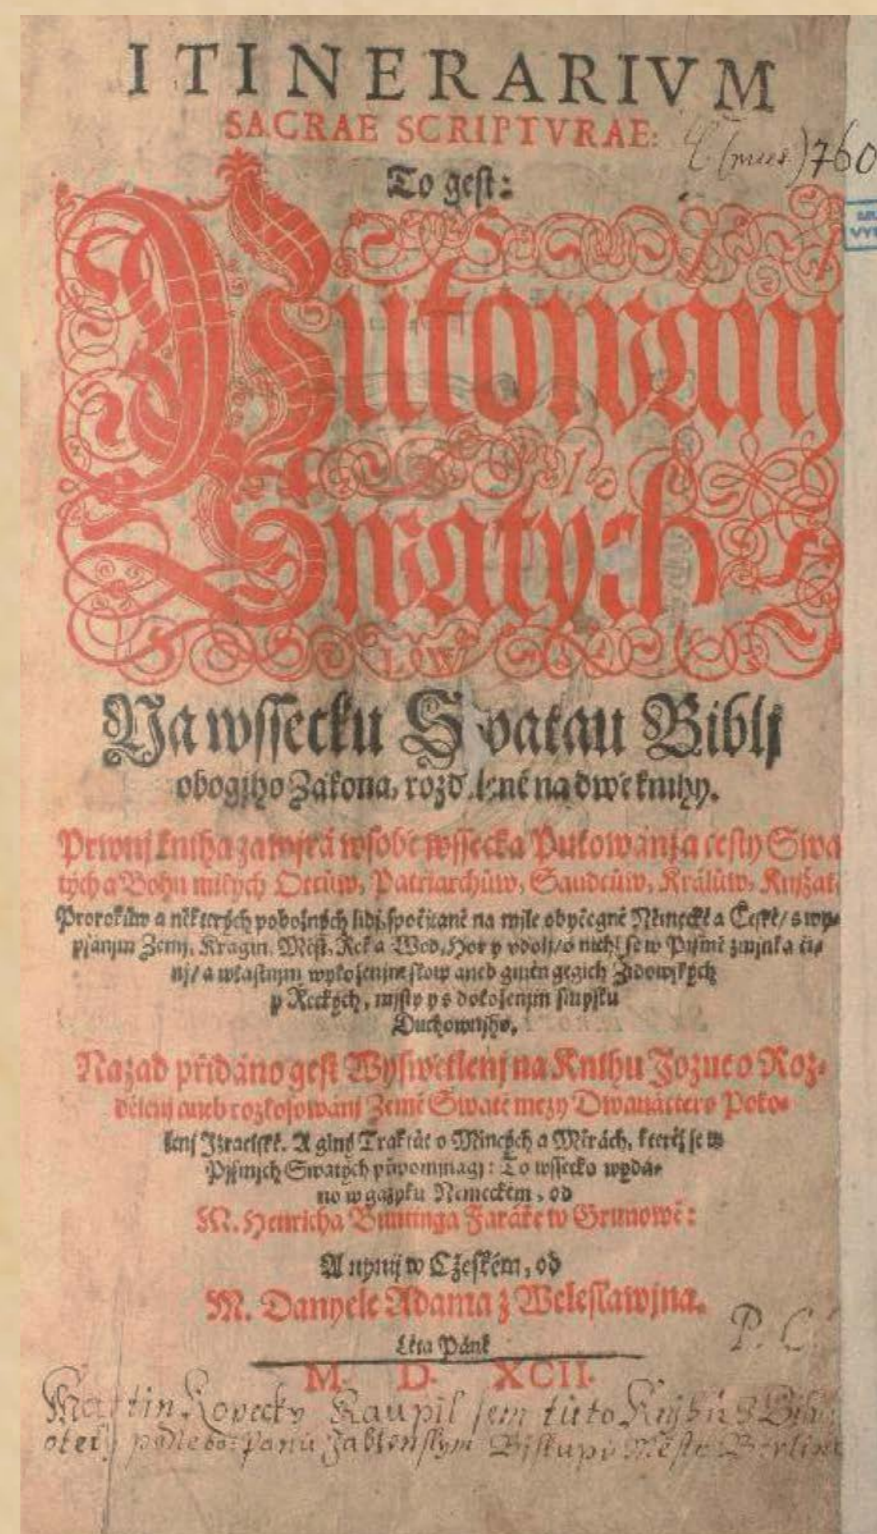 ITINERARIVM
SACRAE SCRIPTVRAE:
(mus.) 760
To gest:
Putowanj
Swatych
Na wssecku Swatau Biblj
obogjho Zákona, rozdělené na dwě knihy.
Prwnj kniha zawjrá w sobě wssecka Putowánj a cesty Swa
tých a Bohu milých Otcůw, Patriarchůw, Saudcůw, Králůw, Knjžat,
Prorokůw a některých pobožných lidj, spočitané na mjle obyčegné Německé a České/ s wy-
psánjm Zemj, Kragin, Měst, Řek a Wod, Hor y vdolj/ o nichž se w Pjsmě zmjnka či-
nj/ a wlastnjm wyloženjm slow aneb gmén gegich Židowských
y Řeckých, mjsty y s doloženjm smyslu
Duchownjho.
Nazad přidáno gest Wyswětlenj na Knihu Jozue o Roz-
dělenj aneb rozlosowánj Země Swaté mezy Dwanáctero Poko-
lenj Izraelské. A giný Traktát o Mincých a Měrách, kteréž se w
Pjsmjch Swatých připomjnagj: To wssecko wydá-
no w gazyku Německém, od
M. Henricha Buntinga Faráře w Grunowě:
A nynij w Cžeském, od
M. Danyele Adama z Weleslawjna.
P. C.
Léta Páně
M. D. XCII.
Martin Kopecky Kaupil sem tuto Knjhu z
podle Panu Jablonskym Biskupu Městě Berline